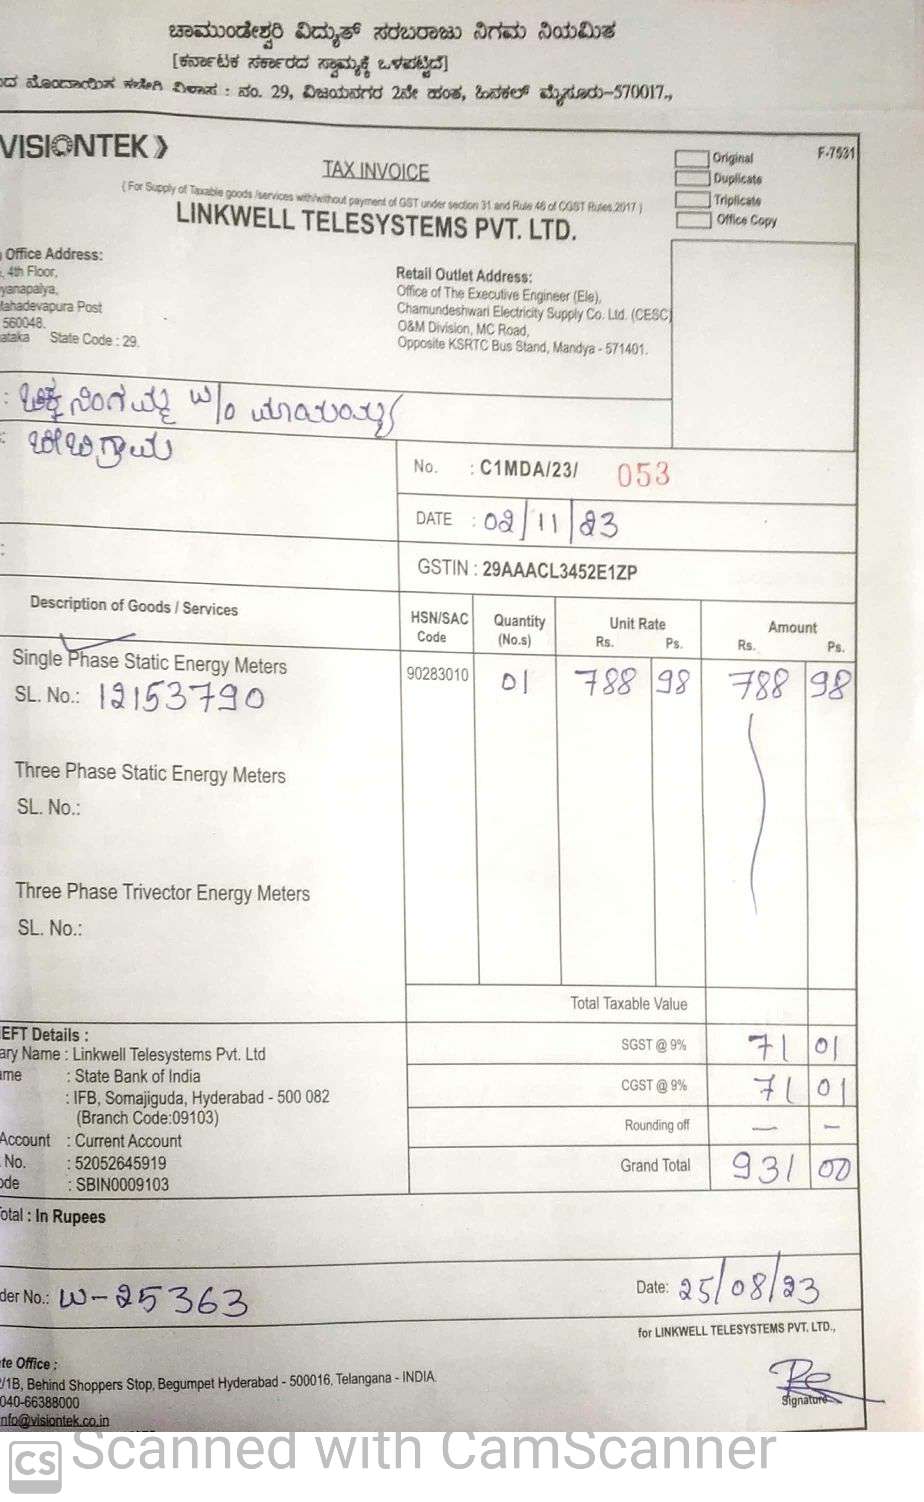 ಚಾಮುಂಡೇಶ್ವರಿ ವಿದ್ಯುತ್ ಸರಬರಾಜು ನಿಗಮ ನಿಯಮಿತ
[ಕರ್ನಾಟಕ ಸರ್ಕಾರದ ಸ್ವಾಮ್ಯಕ್ಕೆ ಒಳಪಟ್ಟಿದೆ]
ನೊಂದಾಯಿತ ಕಚೇರಿ ವಿಳಾಸ : ನಂ. 29, ವಿಜಯನಗರ 2ನೇ ಹಂತ, ಹಿನಕಲ್ ಮೈಸೂರು-570017.,
VISIONTEK
TAX INVOICE
Original
F-7531
Duplicate
Triplicate
Office Copy
( For Supply of Taxable goods /services with/without payment of GST under section 31 and Rule 46 of CGST Rules.2017 )
LINKWELL TELESYSTEMS PVT. LTD.
Office Address:
4th Floor,
yanapalya,
ahadevapura Post
560048.
ataka State Code : 29.
Retail Outlet Address:
Office of The Executive Engineer (Ele),
Chamundeshwari Electricity Supply Co. Ltd. (CESC)
O&M Division, MC Road,
Opposite KSRTC Bus Stand, Mandya - 571401.
: ಚಿಕ್ಕನಿಂಗಮ್ಮ w/o ಮಾಯಯ್ಯ
No. : C1MDA/23/ 053
DATE : 02/11/23
GSTIN : 29AAACL3452E1ZP
Description of Goods / Services HSN/SAC Code Quantity (No.s) Unit Rate Rs. Ps. Amount Rs. Ps.
Single Phase Static Energy Meters 90283010 01 788 98 788 98
SL. No.: 12153790
Three Phase Static Energy Meters
SL. No.:
Three Phase Trivector Energy Meters
SL. No.:
Total Taxable Value
SGST @ 9% 71 01
CGST @ 9% 71 01
Rounding off — –
Grand Total 931 00
EFT Details :
ary Name : Linkwell Telesystems Pvt. Ltd
me : State Bank of India
: IFB, Somajiguda, Hyderabad - 500 082
(Branch Code:09103)
Account : Current Account
No. : 52052645919
ode : SBIN0009103
otal : In Rupees
der No.: W-25363
Date: 25/08/23
for LINKWELL TELESYSTEMS PVT. LTD.,
te Office :
/1B, Behind Shoppers Stop, Begumpet Hyderabad - 500016, Telangana - INDIA.
040-66388000
nfo@visiontek.co.in
Signature
CS Scanned with CamScanner